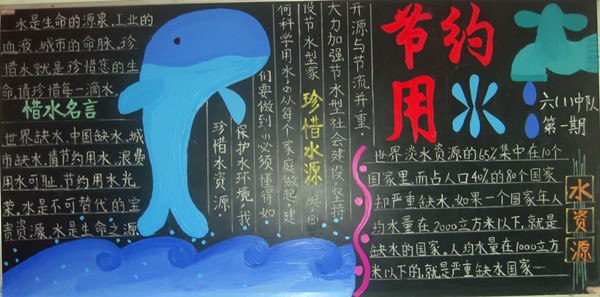 水是生命的源泉,工业的
血液,城市的命脉,珍
惜水就是珍惜您的生
命,请珍惜每一滴水。
惜水名言
世界缺水,中国缺水,城
市缺水,请节约用水,浪费
用水可耻,节约用水光
荣,水是不可替代的宝
贵资源,水是生命之源
珍惜水源
珍惜水资源,
保护水环境,我
们要做到,必须懂得如
何科学用水,必从每个家庭做起,建
设节水型家
大力加强节水型社会建设,坚持
开源与节流并重。
节约
用水
六(1)中队
第一期
世界淡水资源的65%集中在10个
国家里,而占人口40%的80个国家
却严重缺水,如果一个国家年人
均水量在2000立方米以下,就是
缺水的国家。人均水量在1000立方
米以下的,就是严重缺水国家……
水资源